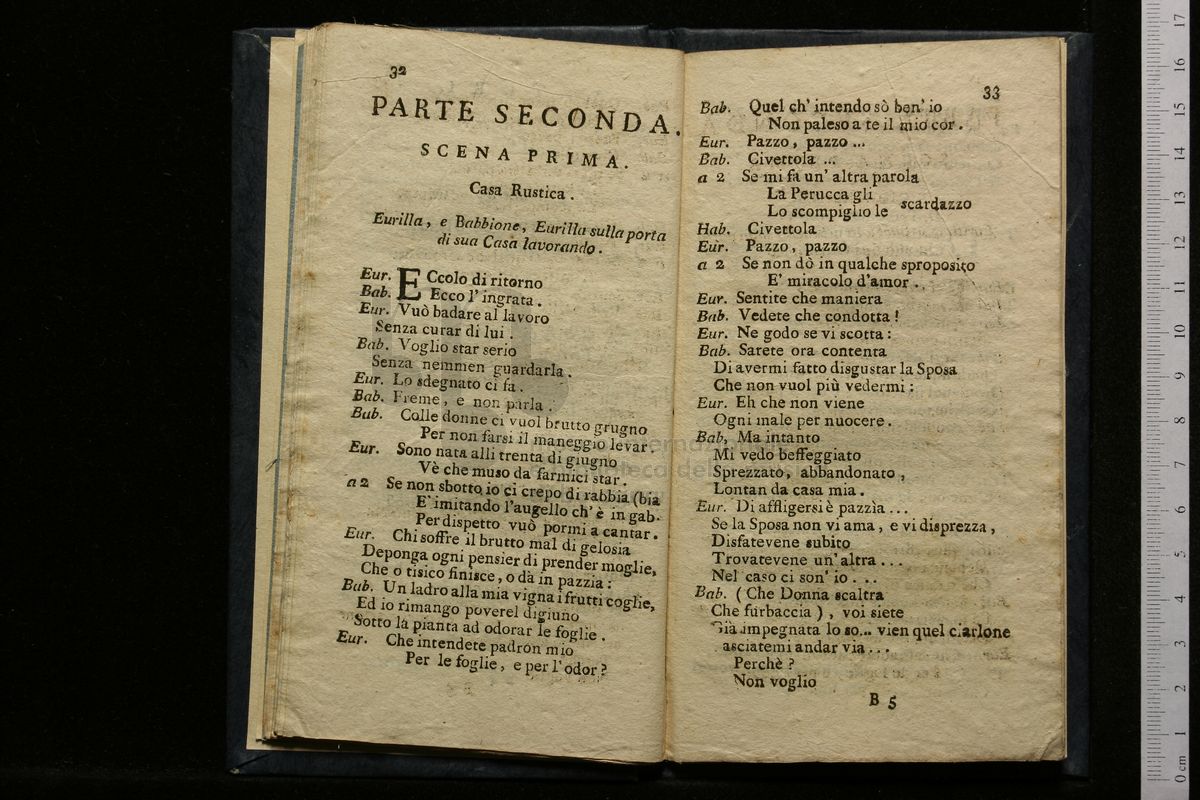 32
PARTE SECONDA.
SCENA PRIMA.
Casa Rustica.
Eurilla, e Babbione, Eurilla sulla porta
di sua Casa lavorando.
Eur. ECcolo di ritorno
Bab. Ecco l' ingrata.
Eur. Vuò badare al lavoro
Senza curar di lui.
Bab. Voglio star serio
Senza nemmen guardarla.
Eur. Lo sdegnato ci fa.
Bab. Freme, e non parla.
Bab. Colle donne ci vuol brutto grugno
Per non farsi il maneggio levar.
Eur. Sono nata alli trenta di giugno
Vè che muso da farmici star.
a 2 Se non sbotto, io ci crepo di rabbia (bia
E' imitando l'augello ch' è in gab-
Per dispetto vuò pormi a cantar.
Eur. Chi soffre il brutto mal di gelosia
Deponga ogni pensier di prender moglie,
Che o tisico finisce, o dà in pazzia:
Bab. Un ladro alla mia vigna i frutti coglie,
Ed io rimango poverel digiuno
Sotto la pianta ad odorar le foglie.
Eur. Che intendete padron mio
Per le foglie, e per l'odor?
33
Bab. Quel ch' intendo sò ben' io
Non paleso a te il mio cor.
Eur. Pazzo, pazzo ...
Bab. Civettola ...
a 2 Se mi fà un' altra parola
La Perucca gli
Lo scompiglio le scardazzo
Hab. Civettola
Eur. Pazzo, pazzo
a 2 Se non dò in qualche sproposito
E' miracolo d'amor.
Eur. Sentite che maniera
Bab. Vedete che condotta!
Eur. Ne godo se vi scotta:
Bab. Sarete ora contenta
Di avermi fatto disgustar la Sposa
Che non vuol più vedermi:
Eur. Eh che non viene
Ogni male per nuocere.
Bab, Ma intanto
Mi vedo beffeggiato
Sprezzato, abbandonato,
Lontan da casa mia.
Eur. Di affligersi è pazzìa ...
Se la Sposa non vi ama, e vi disprezza,
Disfatevene subito
Trovatevene un' altra ...
Nel caso ci son' io ...
Bab. (Che Donna scaltra
Che furbaccia), voi siete
Già impegnata lo so... vien quel ciarlone
asciatemi andar via ...
Perchè?
Non voglio
B 5